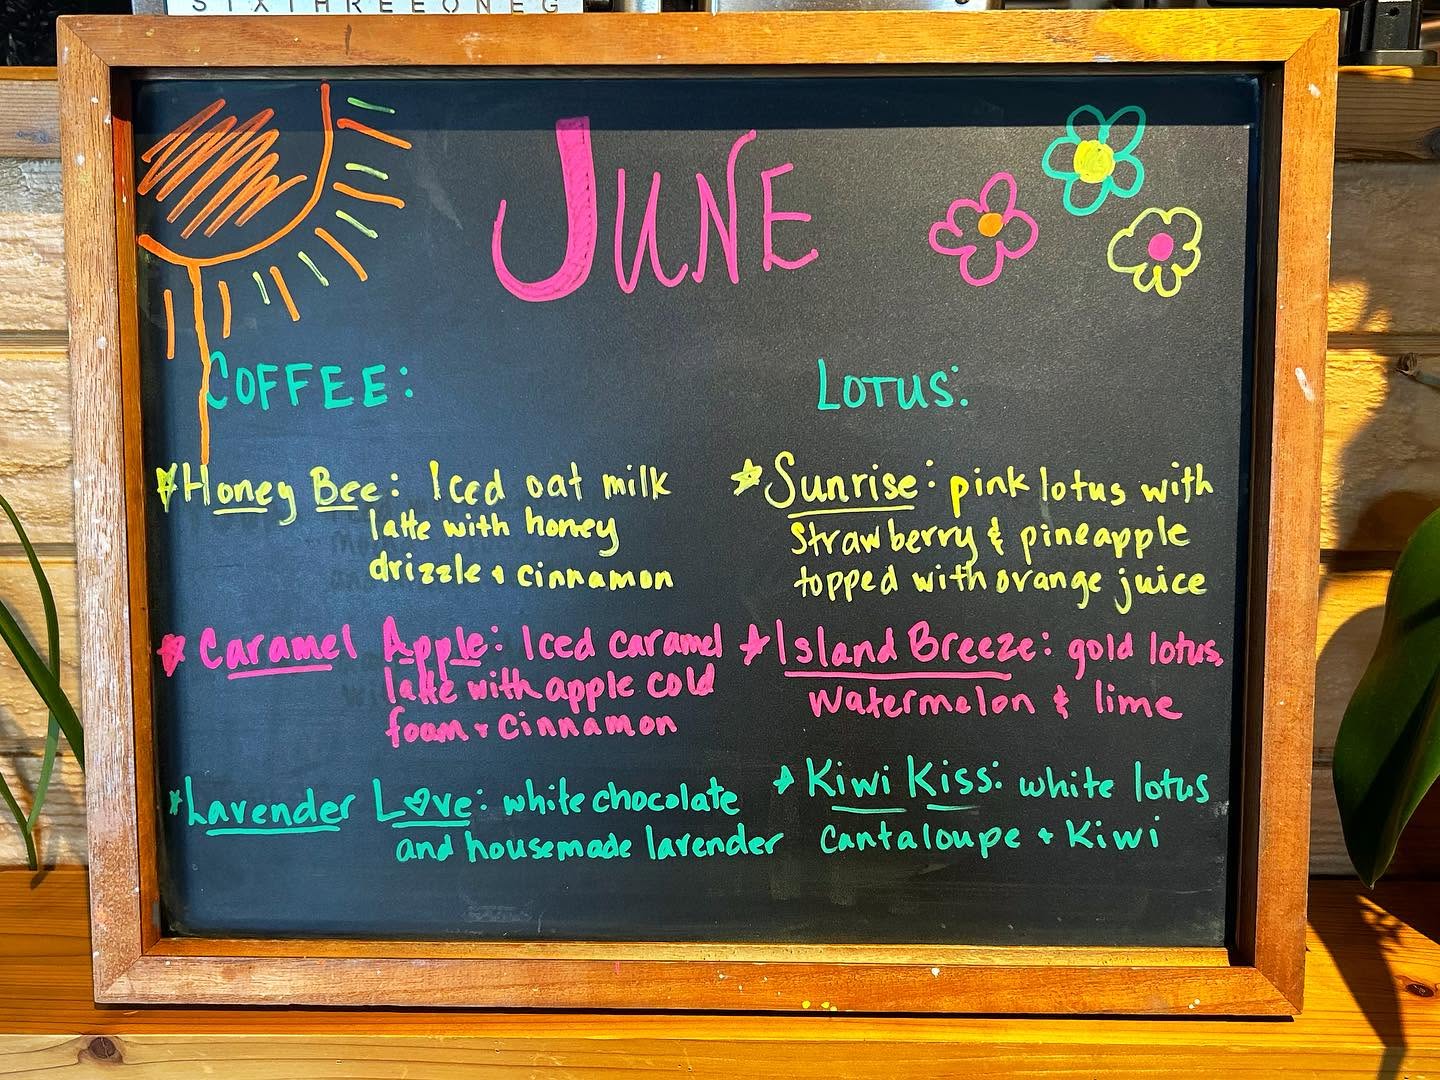 SIXTHREEONEG
JUNE
COFFEE:
Honey Bee: Iced oat milk
latte with honey
drizzle + cinnamon
Caramel Apple: Iced caramel
latte with apple cold
foam + cinnamon
Lavender Love: white chocolate
and housemade lavender
LOTUS:
Sunrise: pink lotus with
strawberry & pineapple
topped with orange juice
Island Breeze: gold lotus,
watermelon & lime
Kiwi Kiss: white lotus
cantaloupe + Kiwi